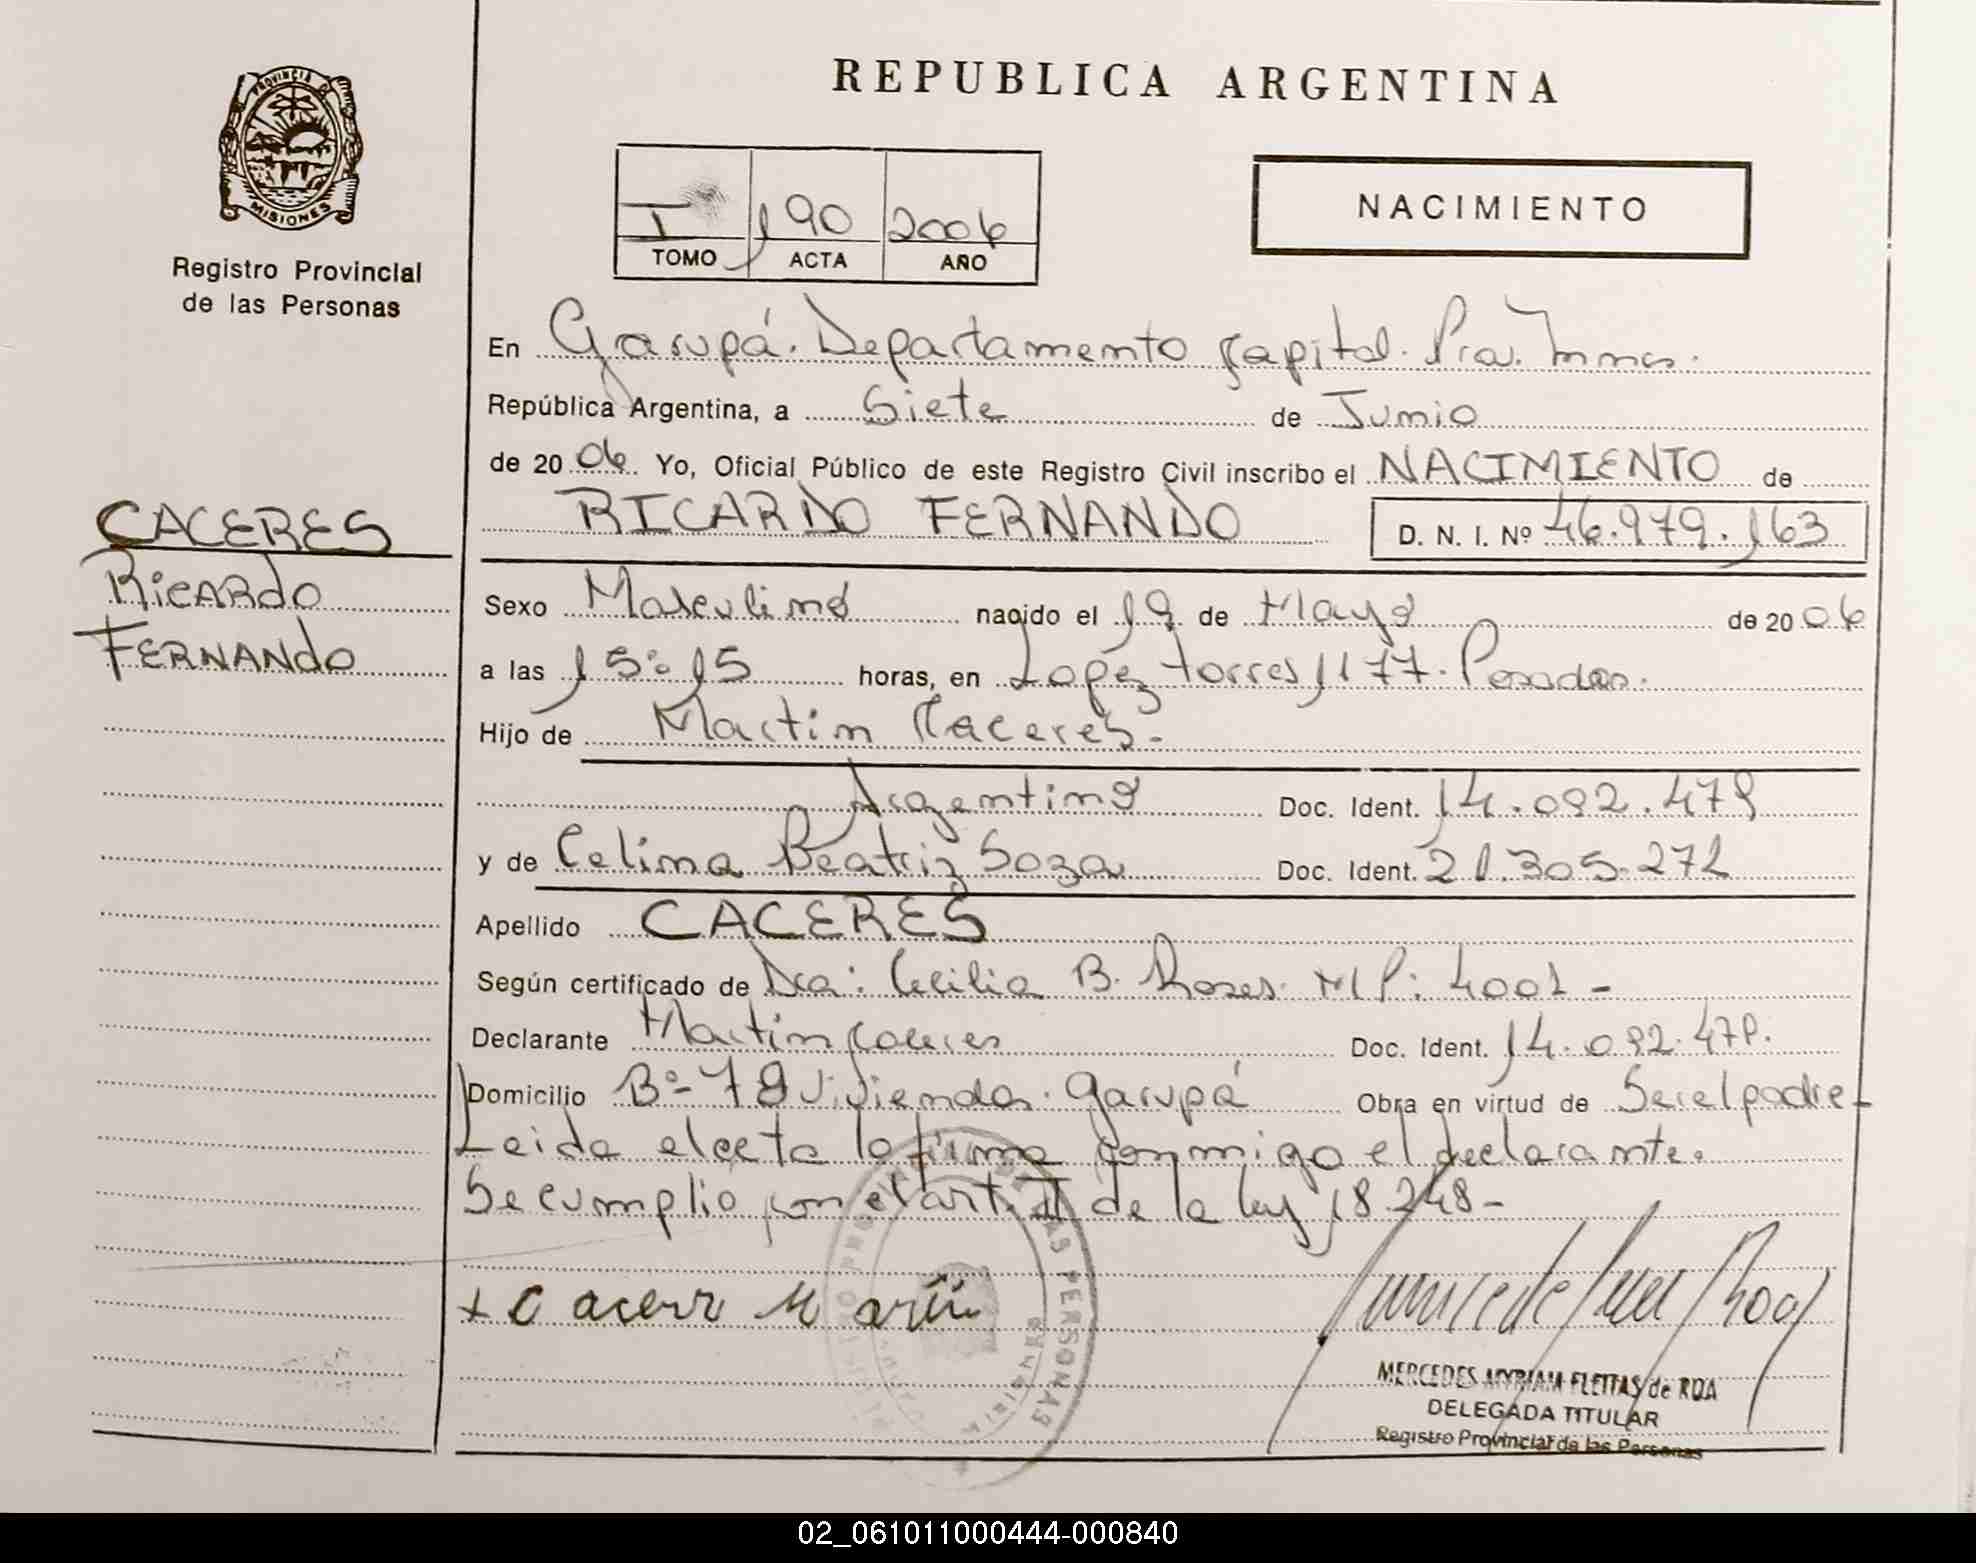 REPUBLICA ARGENTINA
PROVINCIA DE
MISIONES
Registro Provincial
de las Personas
I 190 2006
TOMO ACTA AÑO
NACIMIENTO
En Garupá. Departamento Capital.
República Argentina, a Siete de Junio
de 20 06 Yo, Oficial Público de este Registro Civil inscribo el NACIMIENTO de
RICARDO FERNANDO D. N. I. Nº 46.979.163
CACERES
Ricardo
FERNANDO
Sexo Masculino nacido el 19 de Mayo de 20 06
a las 15:15 horas, en Lopez torres 1177. Posadas.
Hijo de Martin Caceres.
Argentino Doc. Ident. 14.092.479
y de Celina Beatriz Soza Doc. Ident. 21.305.272
Apellido CACERES
Según certificado de Dra: Cecilia B. MP: 4001 -
Declarante Martin Caceres Doc. Ident. 14.092.479.
Domicilio Bº- 79 Viviendas. Garupá Obra en virtud de Ser el padre-
Leida el acta la firma conmigo el declarante.
Se cumplio con el art. II de la ley 18.248-
+ Cacerr Martin
MERCEDES MYRIAM FLEITAS de ROA
DELEGADA TITULAR
Registro Provincial de las Personas
02_061011000444-000840